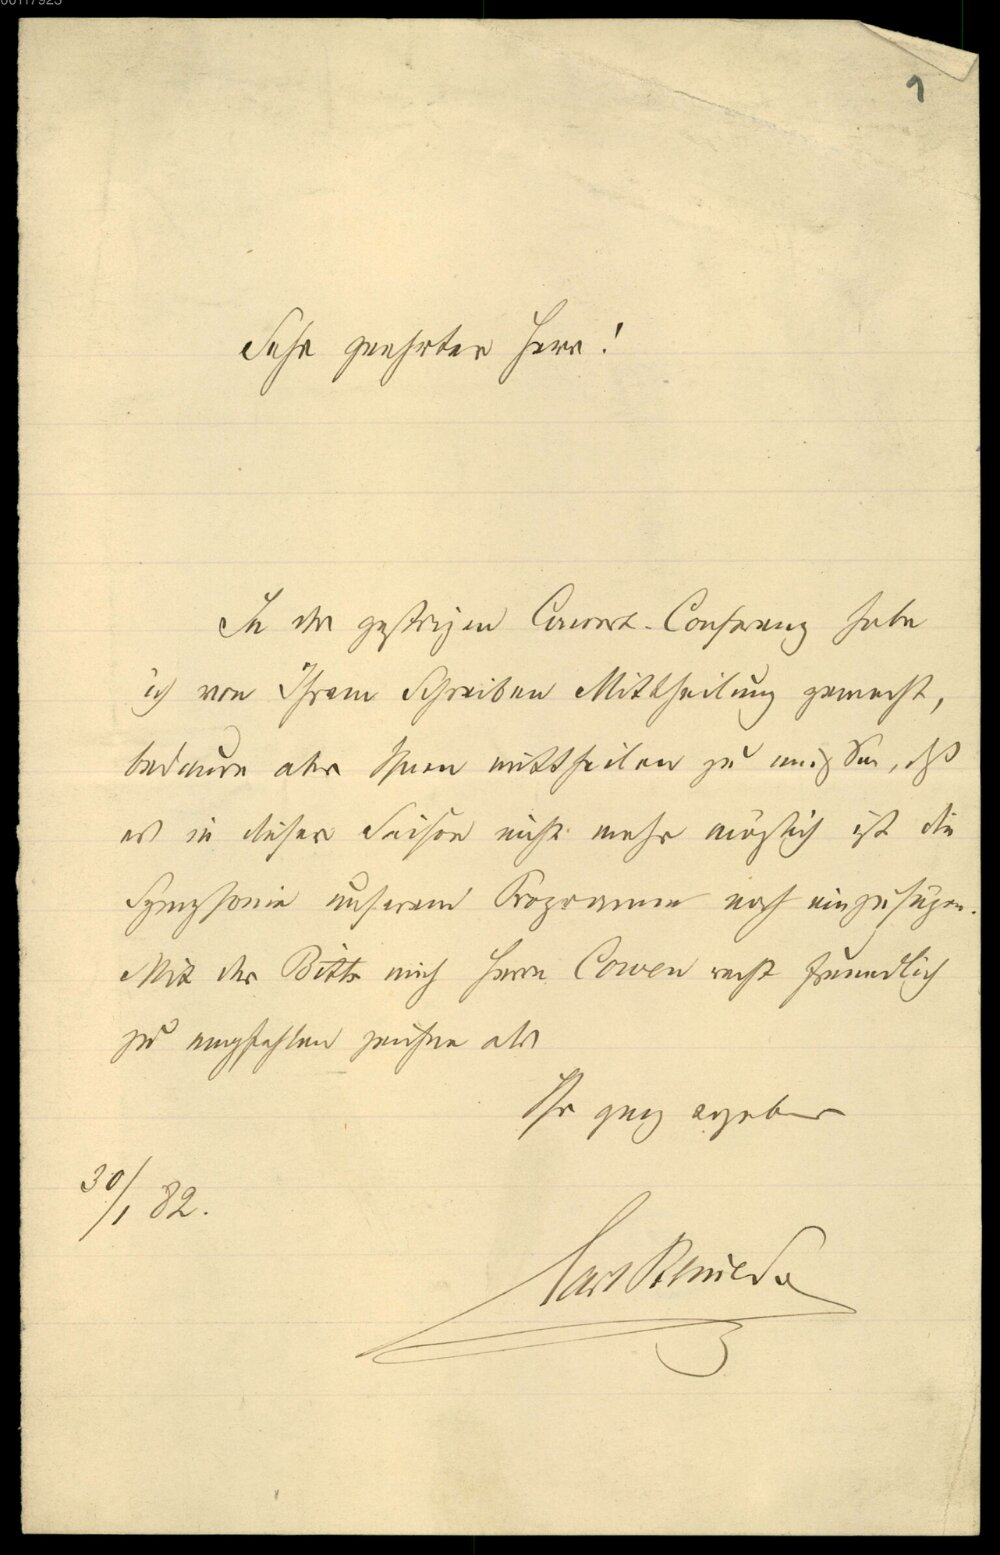 00117923
1
Sehr geehrter Herr!
In der gestrigen Concert-Conferenz habe
ich von Ihrem Schreiben Mittheilung gemacht,
bedaure aber Ihnen mittheilen zu müssen, daß
es in dieser Saison nicht mehr möglich ist die
Symphonie unserem Programm noch einzufügen.
Mit der Bitte mich Herrn Cowen recht freundlich
zu empfehlen zeichne als
Ihr ganz ergebener
30/1 82.
Carl Reinecke